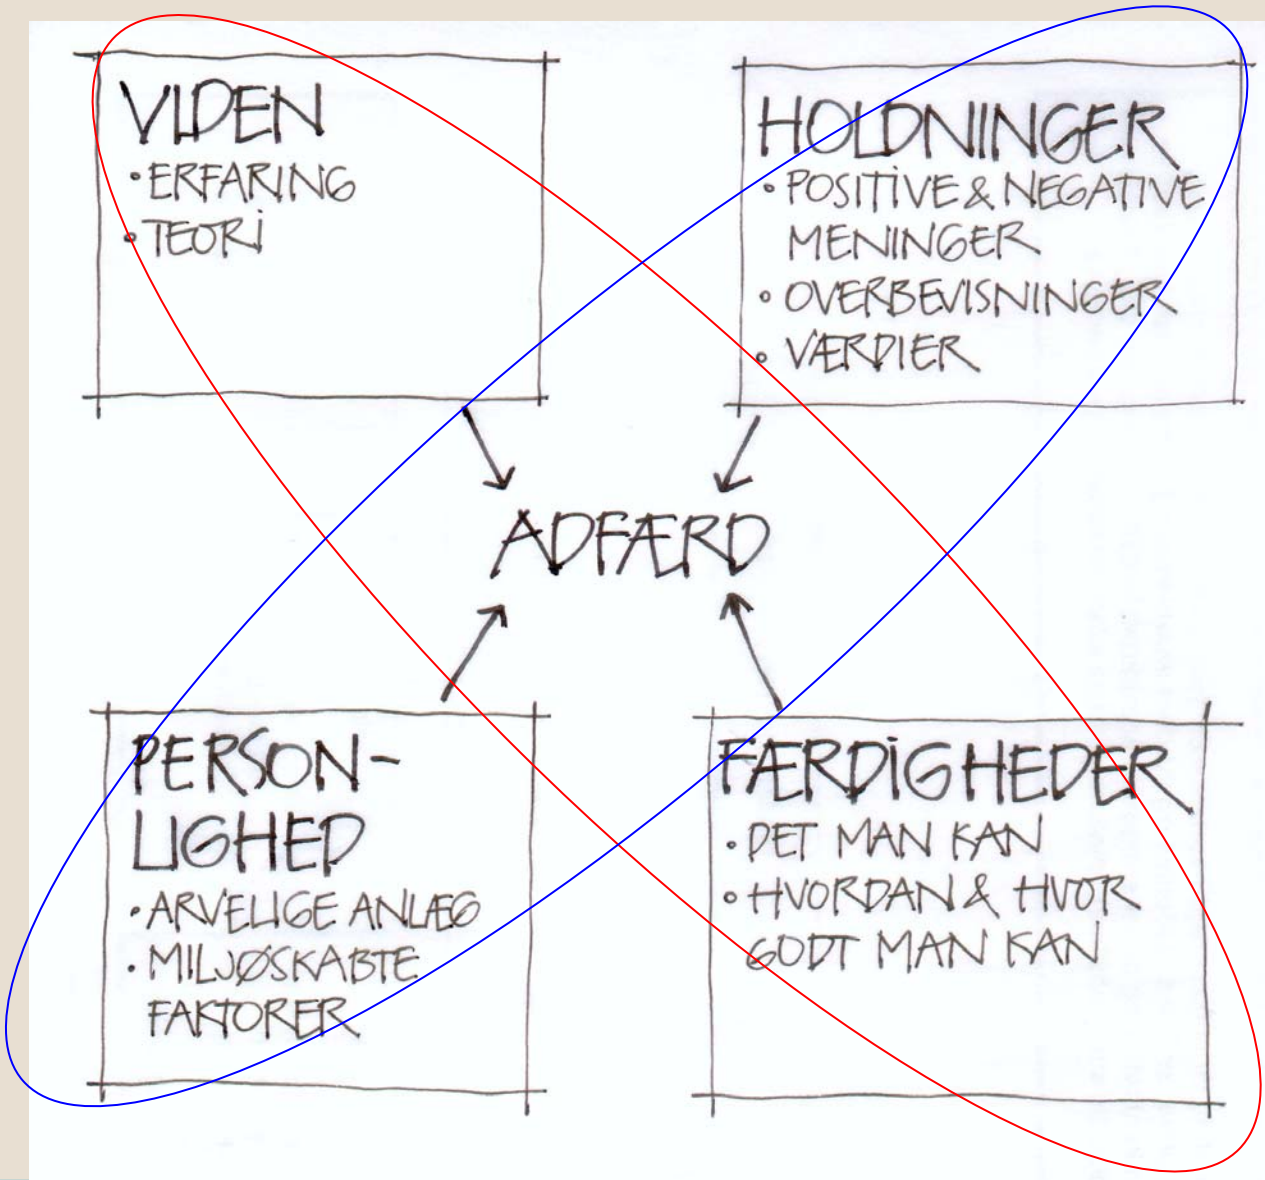 VIDEN
• ERFARING
• TEORI
HOLDNINGER
• POSITIVE & NEGATIVE
MENINGER
• OVERBEVISNINGER
• VÆRDIER
ADFÆRD
PERSON-
LIGHED
• ARVELIGE ANLÆG
• MILJØSKABTE
FAKTORER
FÆRDIGHEDER
• DET MAN KAN
• HVORDAN & HVOR
GODT MAN KAN